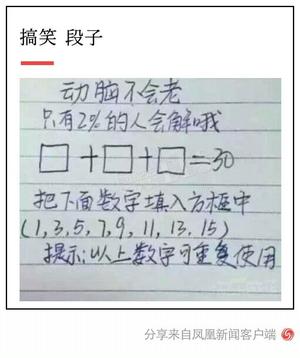 搞笑 段子
动脑不会老
只有2%的人会解哦
□+□+□=30
把下面数字填入方框中
(1,3,5,7,9,11,13.15)
提示:以上数字可重复使用
分享来自凤凰新闻客户端